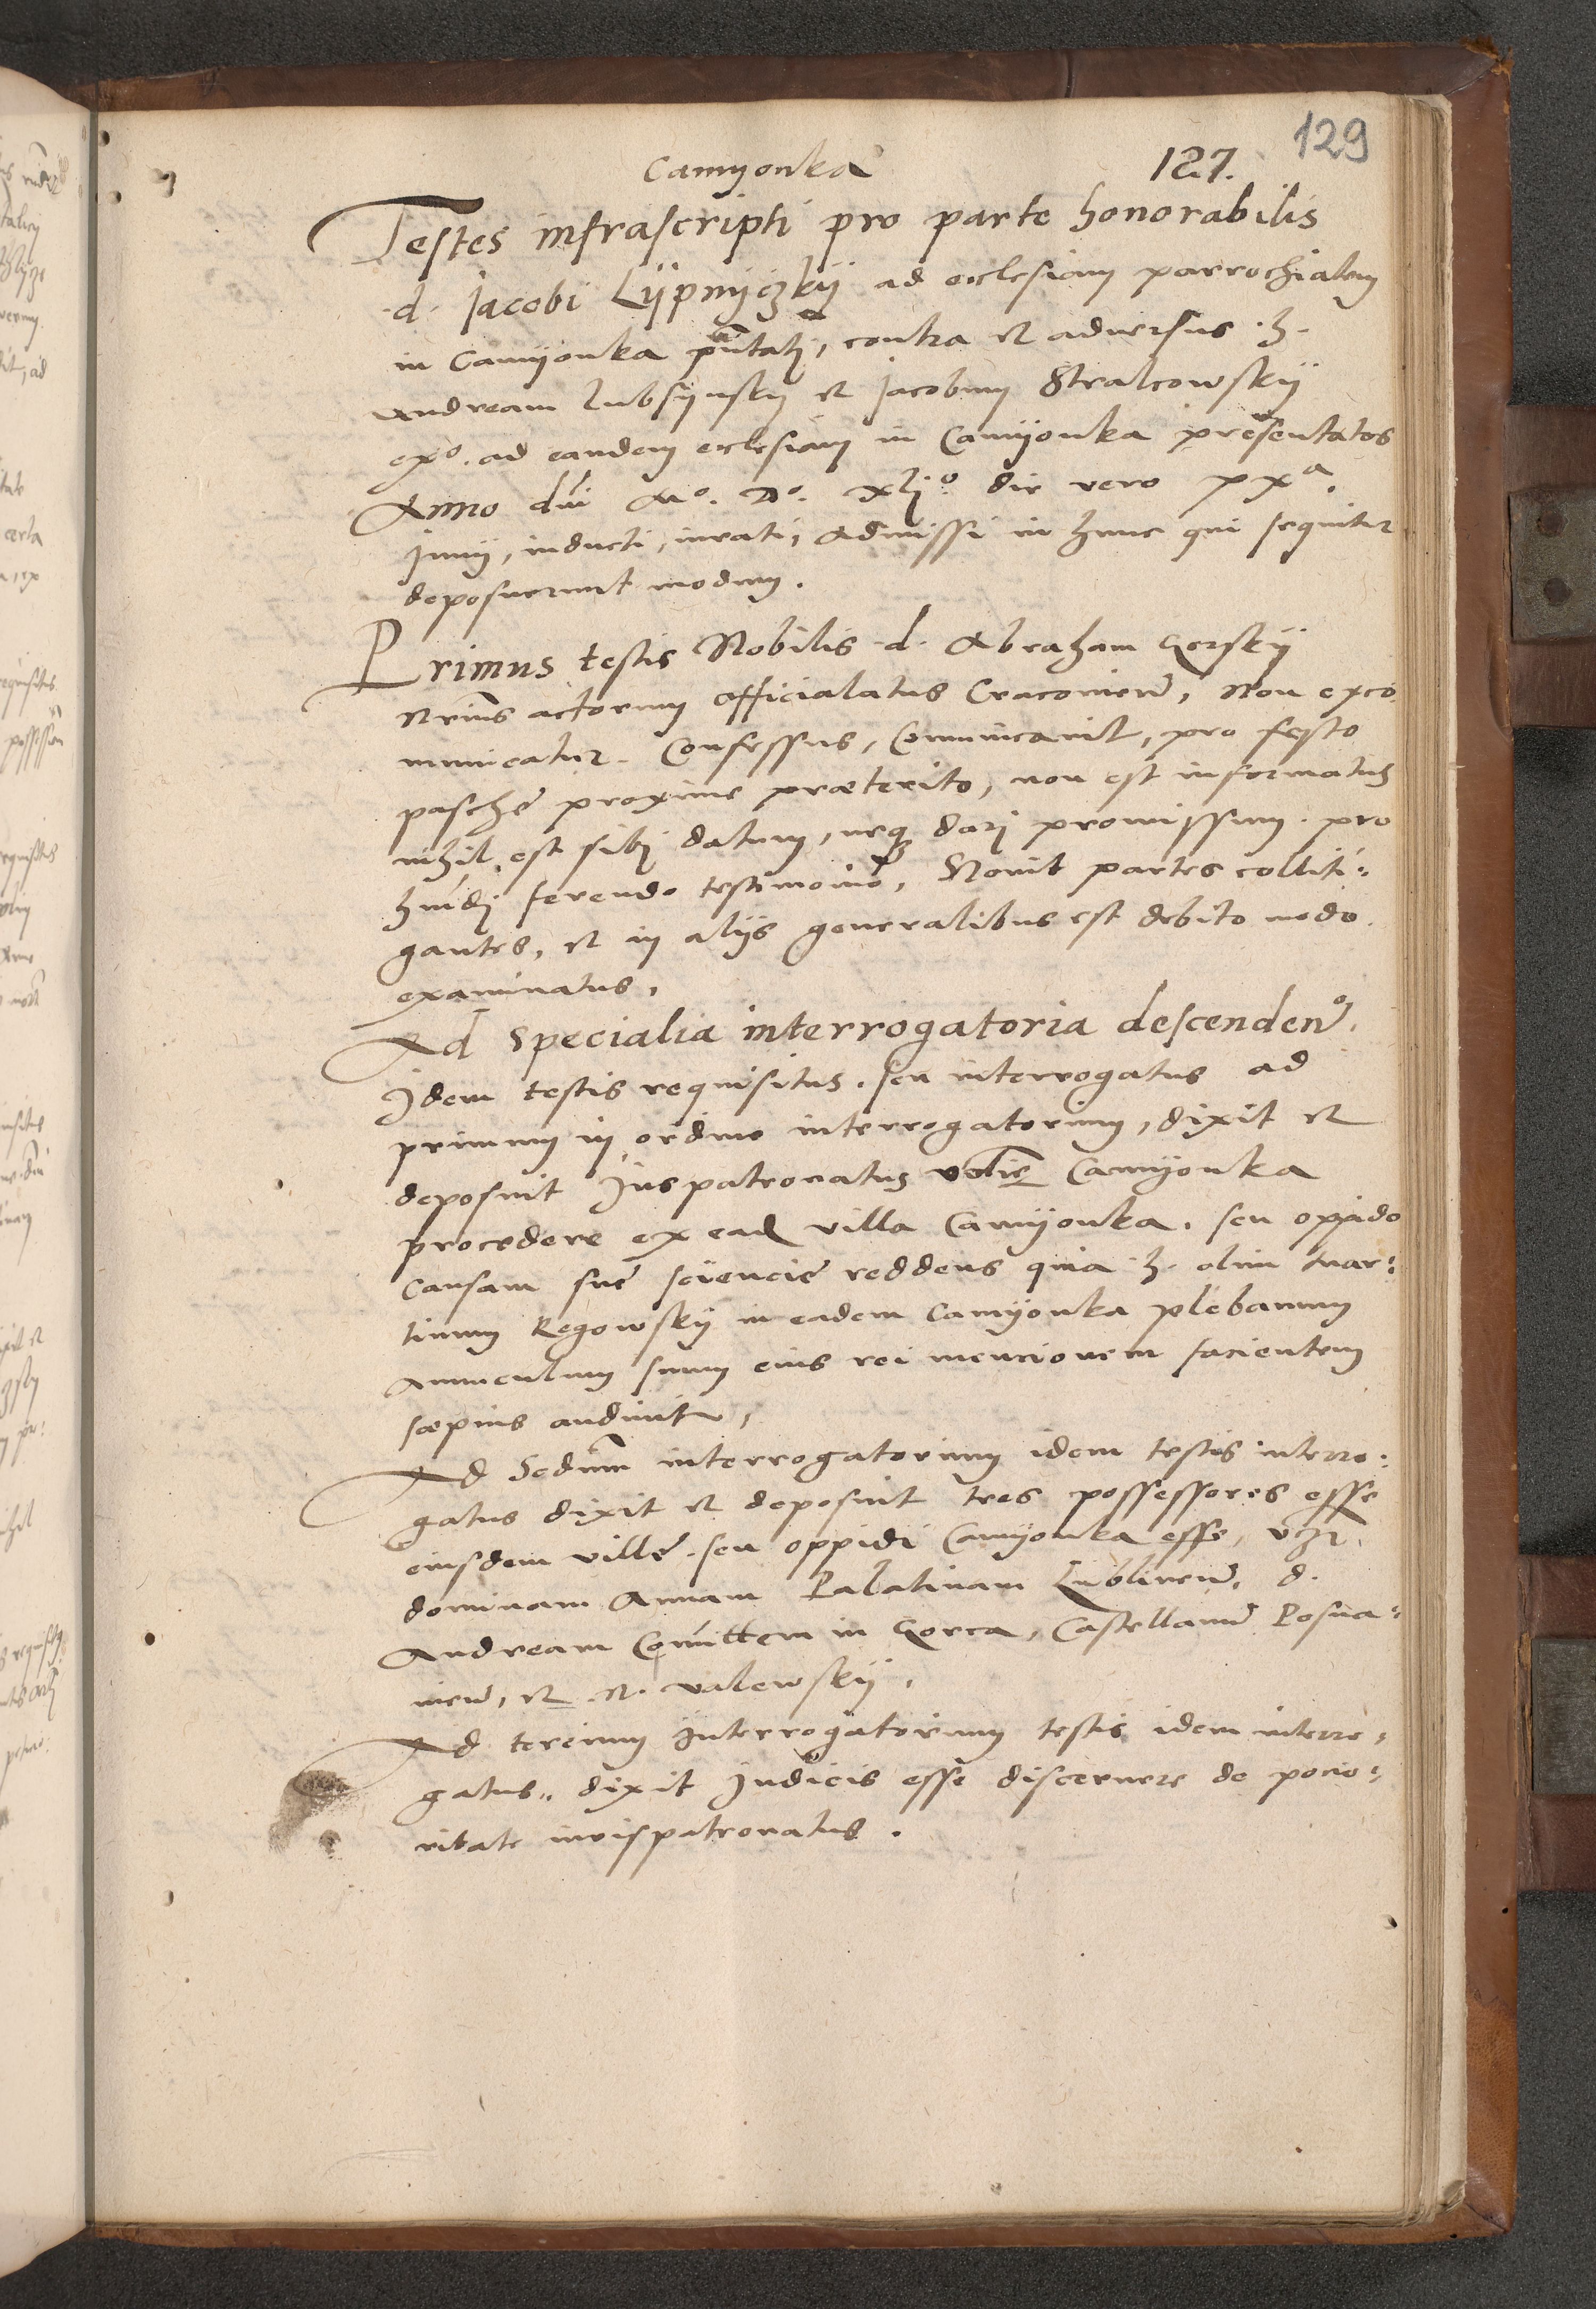 129
Camyonka 127.
Testes infrascripti pro parte honorabilis
.d. Jacobi Lÿpnyczkÿ ad ecclesiam parrochialem
in Camÿonka pñtati, contra et aduersus .h.
Andream Lubsÿnskÿ et Jacobum Stralcowskÿ
exº. ad eandem ecclesiam in Camÿonka presentatos
Anno dnĩ Mº. Dº. xljº. die vero
Junij, inducti, iurati, admissi in hunc qui sequitur
deposuerunt modum.
Primus testis Nobilis .d. Abraham Gorskÿ
Nrius actorum officialatus Cracovien, Non exco
municatur. Confessus, Comunicauit, pro festo
paschę proxime præterito, non est informatus
nihil est sibj datum, neqz darj promissum pro
hmõdj ferendo testimonio, Nouit partes colliti:
gantes, et in alijs generalibus est debito modo
examinatus,
Ad specialia interrogatoria descendenº.
Idem testis requisitus. seu interrogatus ad
primum in ordine interrogatorium, dixit et
deposuit Juspatronatus Camÿonka
procedere ex ead villa Camÿonka. seu oppido
Causam suę sciencię reddens quia .h. olim Mar:
tinum Regowskÿ in eadem Camÿonka plebanum
Auunculum suum eius rei mencionem facientem
sæpius audiuit,
Ad Secdum interrogatorium idem testis interro:
gatus dixit et deposuit tres possessores esse
eiusdem villę. seu oppidi Camÿonka esse, vzr.
dominam Annam Palatinam Lublinen, d.
Andream Comittem in Gorca, Castellanum Posna:
nien, et .N. Valewskÿ,
Ad tercium Interrogatorium testis idem interro:
gatus,, dixit Judicis esse discernere de pocio:
ritate iurispatronatus.